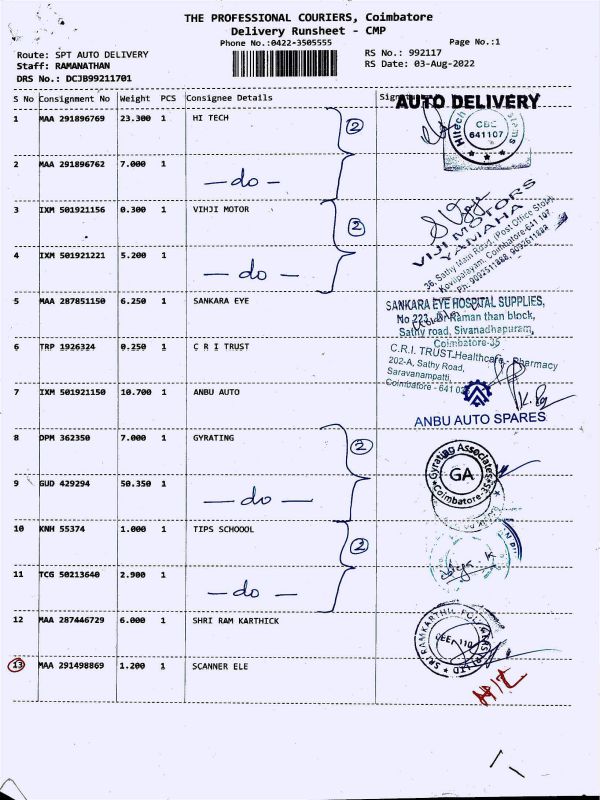 THE PROFESSIONAL COURIERS, Coimbatore
Delivery Runsheet - CMP
Phone No.:0422-3505555 Page No.:1
Route: SPT AUTO DELIVERY RS No.: 992117
Staff: RAMANATHAN RS Date: 03-Aug-2022
DRS No.: DCJB99211701
S No Consignment No Weight PCS Consignee Details
AUTO DELIVERY
1 MAA 291896769 23.300 1 HI TECH 2
CBE
641107
2 MAA 291896762 7.000 1
—do—
3 IXM 501921156 0.300 1 VIHJI MOTOR 2
VIJI MOTORS
YAMAHA
36, Sathy Main Road, (Post Office Stop)
Kovilpalayam, Coimbatore-641 107
Ph: 9092511888, 9092611888
4 IXM 501921221 5.200 1
—do—
5 MAA 287851150 6.250 1 SANKARA EYE
SANKARA EYE HOSPITAL SUPPLIES,
No 223, Raman than block,
Sathy road, Sivanadhapuram,
Coimbatore-35
6 TRP 1926324 0.250 1 C R I TRUST
C.R.I. TRUST Healthcare - Pharmacy
202-A, Sathy Road,
Saravanampatti,
Coimbatore - 641 0
7 IXM 501921150 10.700 1 ANBU AUTO
ANBU AUTO SPARES
8 DPM 362350 7.000 1 GYRATING 2
Gyrating Associates
GA
Coimbatore-35
9 GUD 429294 50.350 1
—do—
10 KNH 55374 1.000 1 TIPS SCHOOOL 2
11 TCG 50213640 2.900 1
—do—
12 MAA 287446729 6.000 1 SHRI RAM KARTHICK
13 MAA 291498869 1.200 1 SCANNER ELE